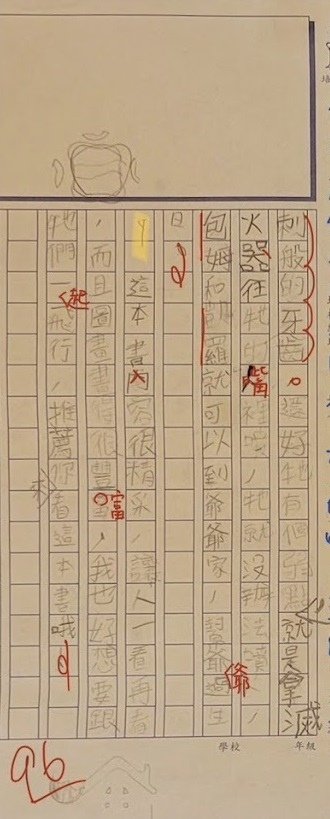 刺般的牙齒。還好牠有個弱點就是拿滅
火器往牠的嘴裡噴，牠就沒辦法噴，
包姆和凱羅就可以到爺爺家，替爺爺過生
日
這本書內容很精采，讓人一看再看
，而且圖畫畫得很豐富，我也好想要跟
牠們一起飛行，推薦你看這本書哦
96
學校
年級